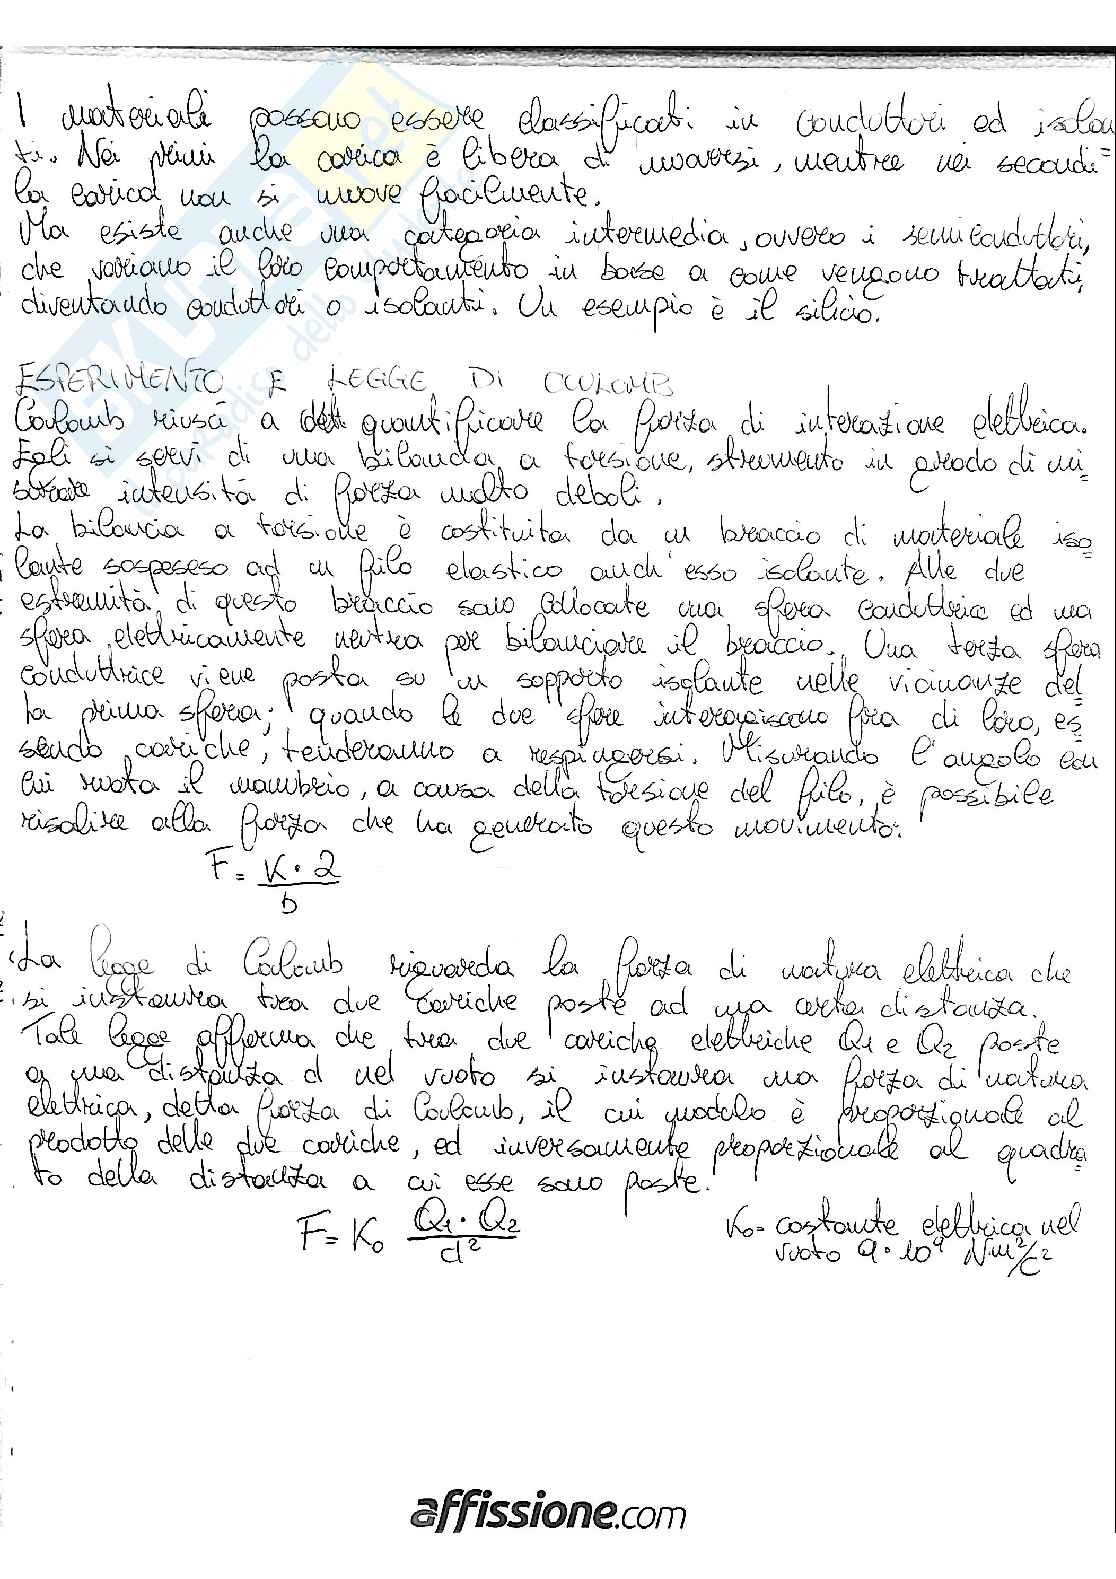 I materiali possono essere classificati in conduttori ed isolan
ti. Nei primi la carica è libera di muoversi, mentre nei secondi
la carica non si muove facilmente.
Ma esiste anche una categoria intermedia, ovvero i semiconduttori,
che variano il loro comportamento in base a come vengono trattati,
diventando conduttori o isolanti. Un esempio è il silicio.
ESPERIMENTO E LEGGE DI COULOMB
Coulomb riuscì a quantificare la forza di interazione elettrica.
Egli si servì di una bilancia a torsione, strumento in grado di mi=
surare intensità di forza molto deboli.
La bilancia a torsione è costituita da un braccio di materiale iso
lante sospeseso ad un filo elastico anch'esso isolante. Alle due
estremità di questo braccio sono collocate una sfera conduttrice ed una
sfera elettricamente neutra per bilanciare il braccio. Una terza sfera
conduttrice viene posta su un supporto isolante nelle vicinanze del
la prima sfera; quando le due sfere interagiscono fra di loro, es
sendo cariche, tenderanno a respingersi. Misurando l'angolo con
cui ruota il manubrio, a causa della torsione del filo, è possibile
risalire alla forza che ha generato questo movimento.
F = K · 2
b
La legge di Coulomb riguarda la forza di natura elettrica che
si instaura tra due cariche poste ad una certa distanza.
Tale legge afferma che tra due cariche elettriche Q1 e Q2 poste
a una distanza d nel vuoto si instaura una forza di natura
elettrica, detta forza di Coulomb, il cui modulo è proporzionale al
prodotto delle due cariche, ed inversamente proporzionale al quadra
to della distanza a cui esse sono poste.
F = K₀ Q₁ · Q₂
d²
K₀ = costante elettrica nel
vuoto 9 · 10⁹ Nm²/C²
affissione.com